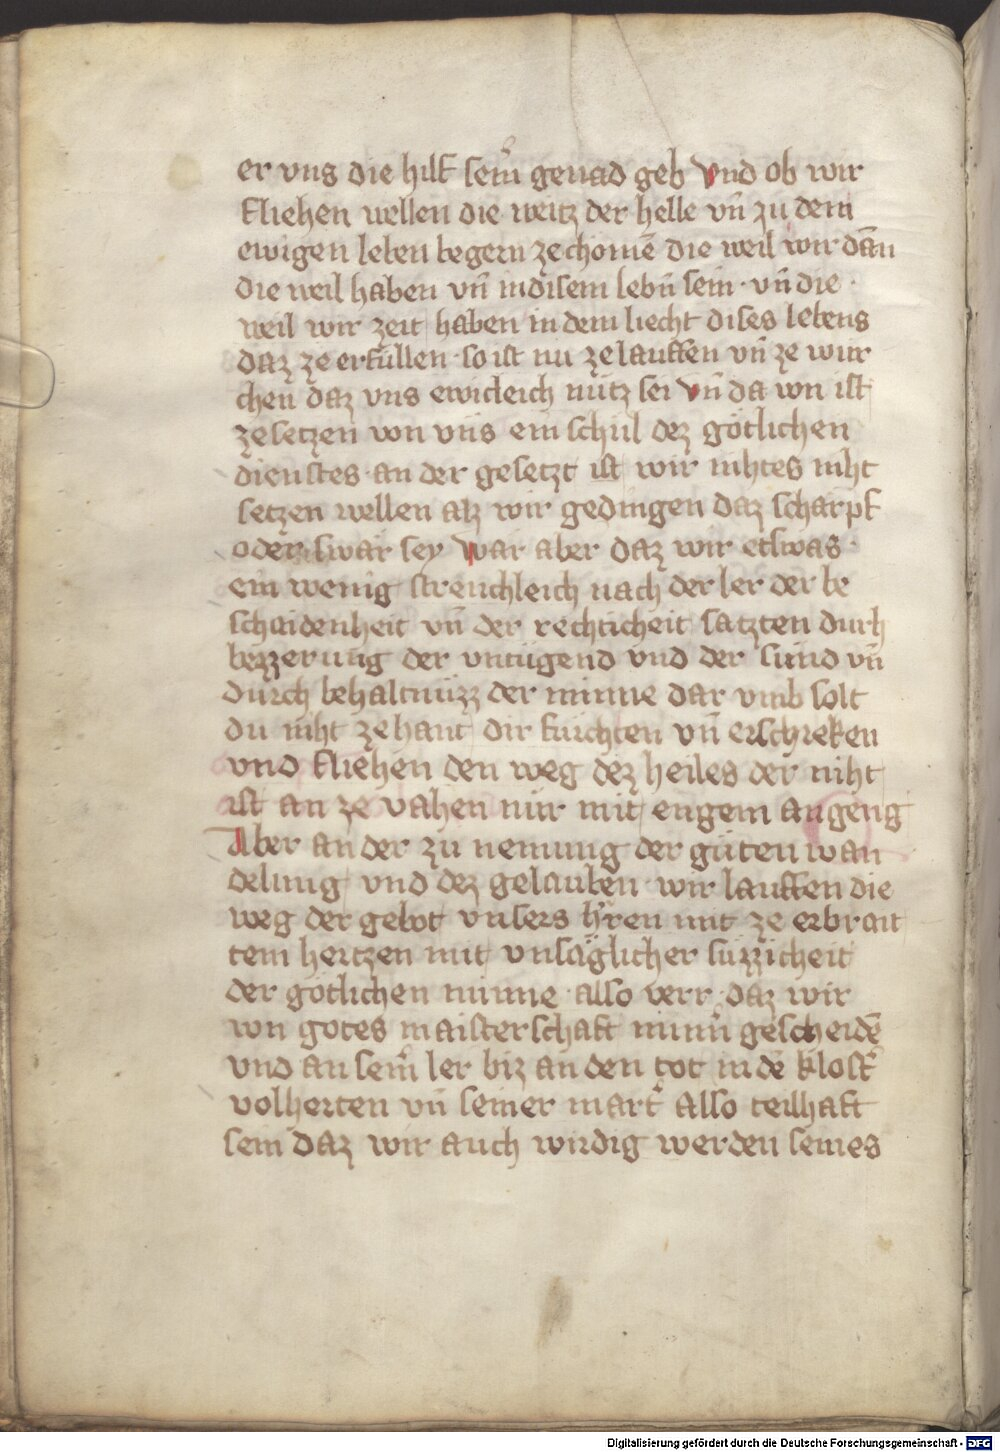 er vns die hilf sein̉ genad geb Vnd ob wir
fliehen wellen die weitz der helle vn̄ zu dem
ewigen leben begern ze chomē die weil wir dān
die weil haben vn̄ in disem lebn̄ sein · vn̄ die ·
weil wir zeit haben in dem liecht dises lebens
daz ze erfüllen · so ist nu ze lauffen vn̄ ze wur
chen daz vns ewicleich nütz sei Vn̄ da von ist
ze setzen von vns ein schul dez götlichen
dienstes · an der gesetzt ist wir nihtes niht
setzen wellen alz wir gedingen daz scharpf
oder swar sey War aber daz wir etswas ·
ein wenig streuchleich nach der ler der be
schaidenheit vn̄ der rechticheit satzten durh
bezzerung der vntugend vnd der sund vn̄
durch behaltnüzz der minne dar vmb solt
du niht ze hant dir fürchten vn̄ erschreken
vnd fliehen den weg dez heiles der niht
ist an ze vahen nur mit engem angeng
Aber an der zu nemung der guten wan
delung vnd dez gelauben wir lauffen die
weg der gebot vnsers h̉ren mit ze erbrait
tem hertzen mit vnsäglicher süzzicheit
der götlichen minne · also verr · daz wir
von gotes maisterschaft nimm̉ gescheidē
vnd an sein̉ ler biz an den tot in dē klost̉
volherten vn̄ seiner mart̉ also teilhaft
sein daz wir auch wirdig werden seines
Digitalisierung gefördert durch die Deutsche Forschungsgemeinschaft - DFG